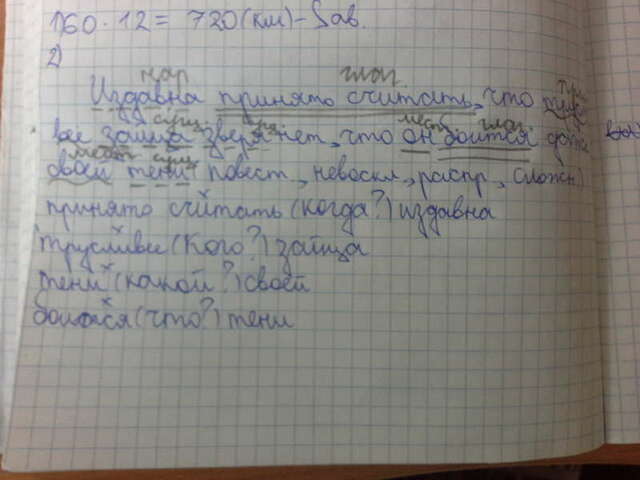 160·12 = 720(км)-Sав.
2)
нар глаг
Издавна принято считать, что трус
сущ. мест глаг.
вее зайца зверя нет, что он боится даже
мест сущ
своей тени (повест., невоскл., распр, сложн)
принято считать (когда?) издавна
трусливее (кого?) зайца
тени (какой?) своей
боится (что?) тени